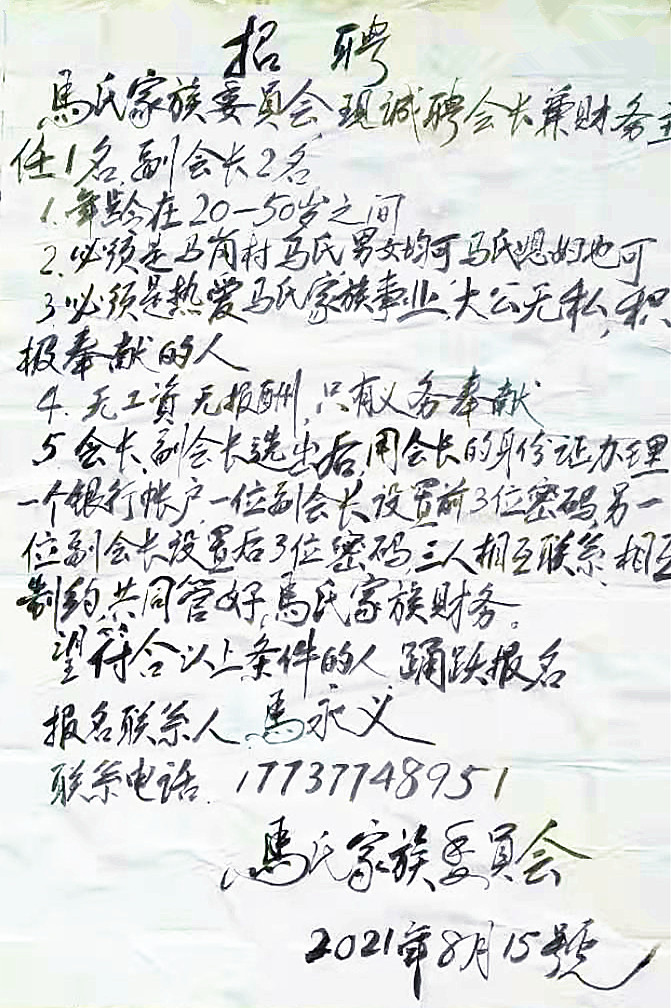 招聘
馬氏家族委員会现诚聘会长兼财务主
任1名,副会长2名
1.年龄在20-50岁之间
2.必须是马岗村马氏男女均可马氏媳妇也可
3.必须是热爱马氏家族事业,大公无私,积
极奉献的人
4.无工资无报酬,只有义务奉献
5.会长,副会长选出后,用会长的身份证办理
一个银行帐户,一位副会长设置前3位密码,另一
位副会长设置后3位密码,三人相互联系,相互
制约,共同管好,馬氏家族财务。
望符合以上条件的人踊跃报名
报名联系人.馬永义
联系电话.17737748951
馬氏家族委員会
2021年8月15號